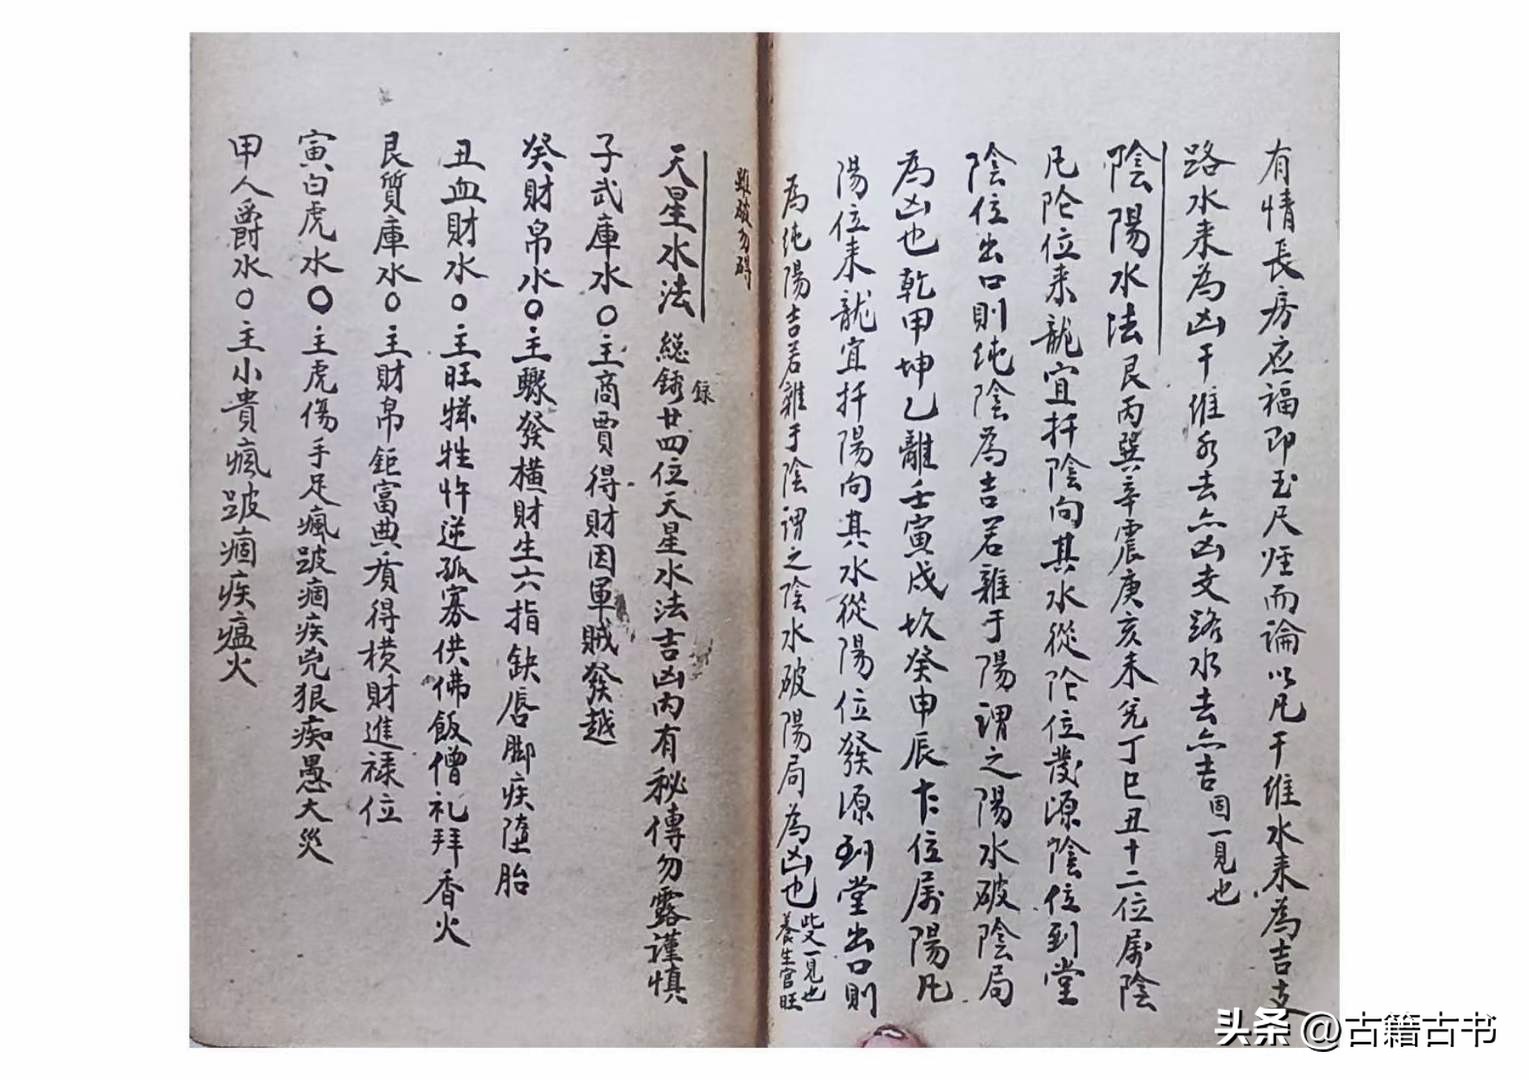 有情長房应福即玉尺烴而論以凡干维水来為吉支
路水来為凶干维水去亦凶支路水去亦吉因一見也
陰陽水法艮丙巽辛震庚亥未兑丁巳丑十二位属陰
凡阴位来龍宜扦陰向其水從阴位發源陰位到堂
陰位出口則纯陰為吉若雜于陽謂之陽水破陰局
為凶也乾甲坤乙離壬寅戌坎癸申辰十二位属陽凡
陽位来龍宜扦陽向其水從陽位發源到堂出口則
為纯陽吉若雜于陰謂之陰水破陽局為凶也此又一見也
養生官旺
雖破勿碍
天星水法総録廿四位天星水法吉凶内有秘傳勿露謹慎
子武庫水〇主商賈得財因軍賊發越
癸財帛水〇主驟發横財生六指缺唇脚疾堕胎
丑血財水〇主旺犠牲忤逆孤寡供佛飯僧礼拜香火
艮質庫水〇主財帛鉅富典质得横財進禄位
寅白虎水〇主虎傷手足瘋跛痼疾兇狠痴愚大災
甲人爵水〇主小貴瘋跛痼疾瘟火
头条 @古籍古书